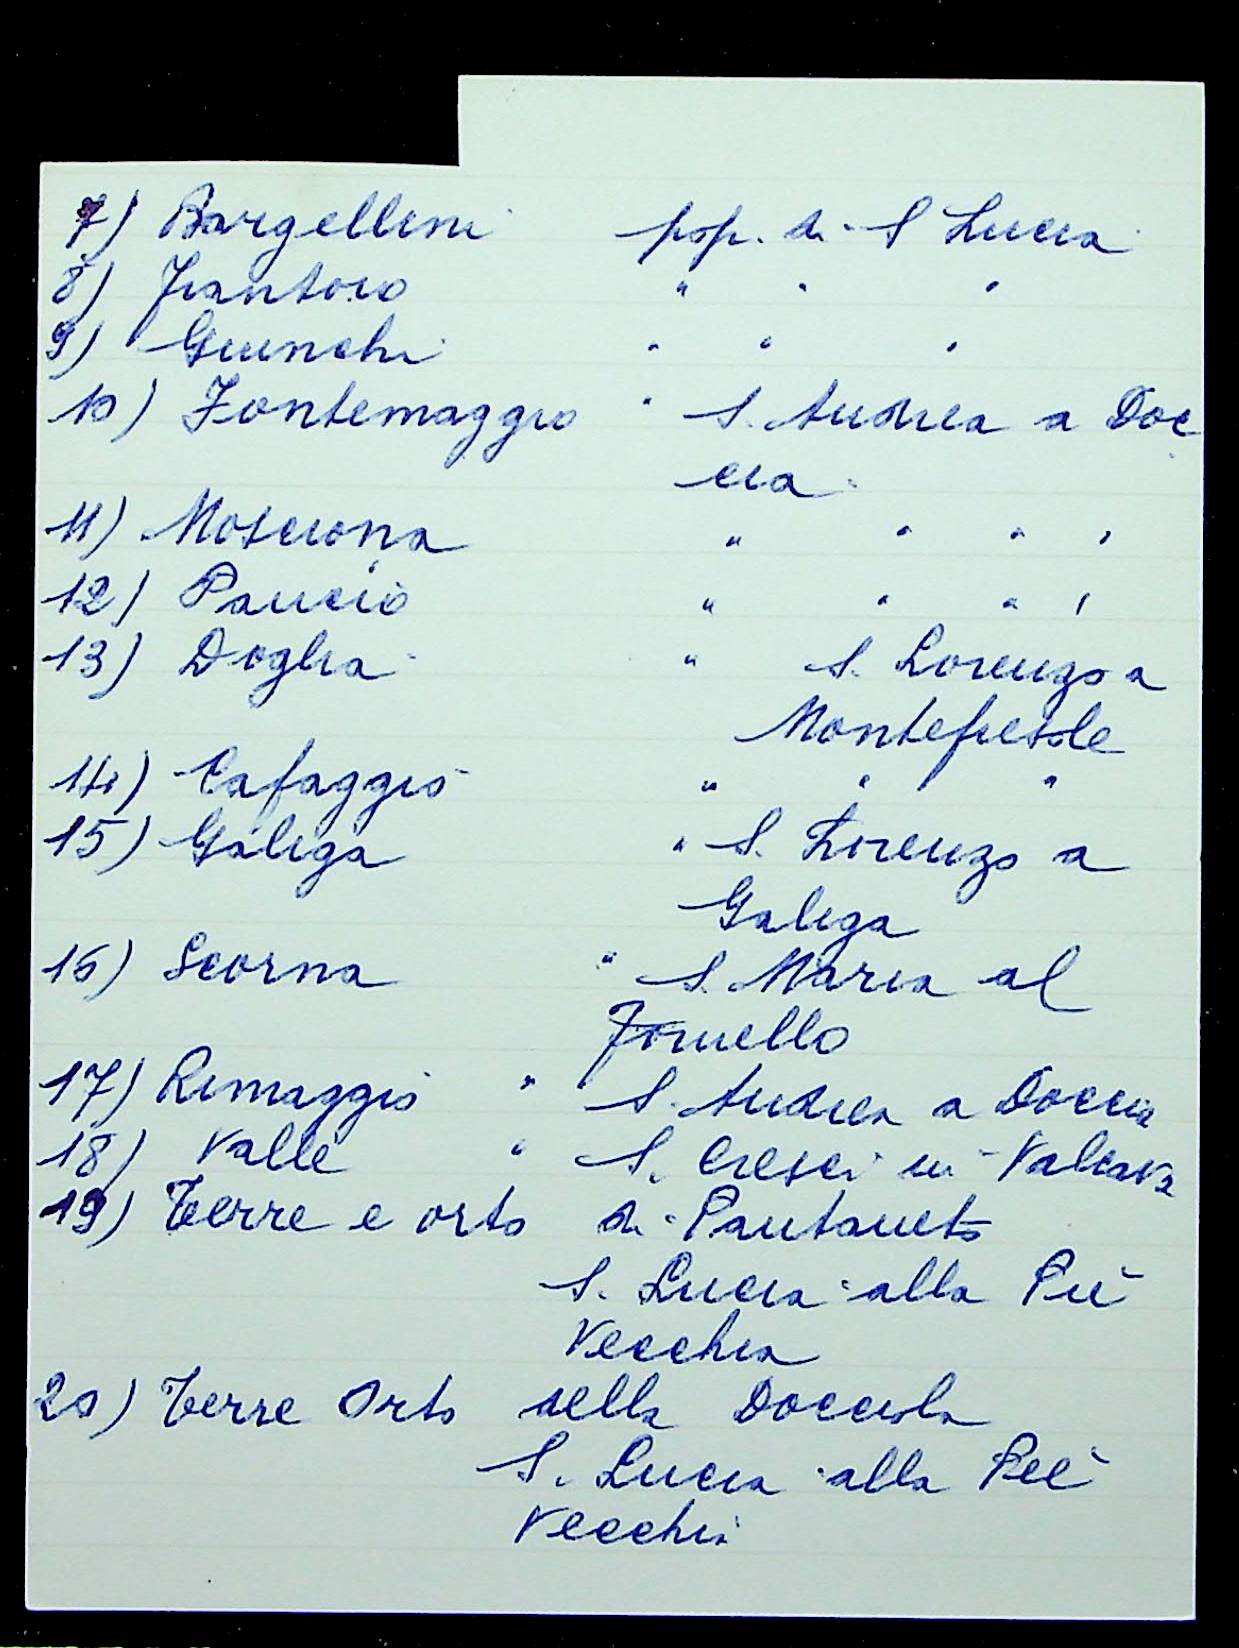 7) Bargellini pop. di S Lucia
8) Frantoio " " "
9) Giunchi " " "
10) Fontemaggio " S. Andrea a Doc
cia
11) Mosciona " " " "
12) Pancio " " " "
13) Doglia " S. Lorenzo a
Montefiesole
14) Cafaggio " " "
15) Galiga " S. Lorenzo a
Galiga
16) Scorna " S. Maria al
Fornello
17) Rimaggio " S. Andrea a Doccia
18) Valle " S. Cresci in Valcava
19) Terre e orto di Pantaneto
S. Lucia alla Pie
Vecchia
20) Terre Orto della Docciola
S. Lucia alla Pie
Vecchia